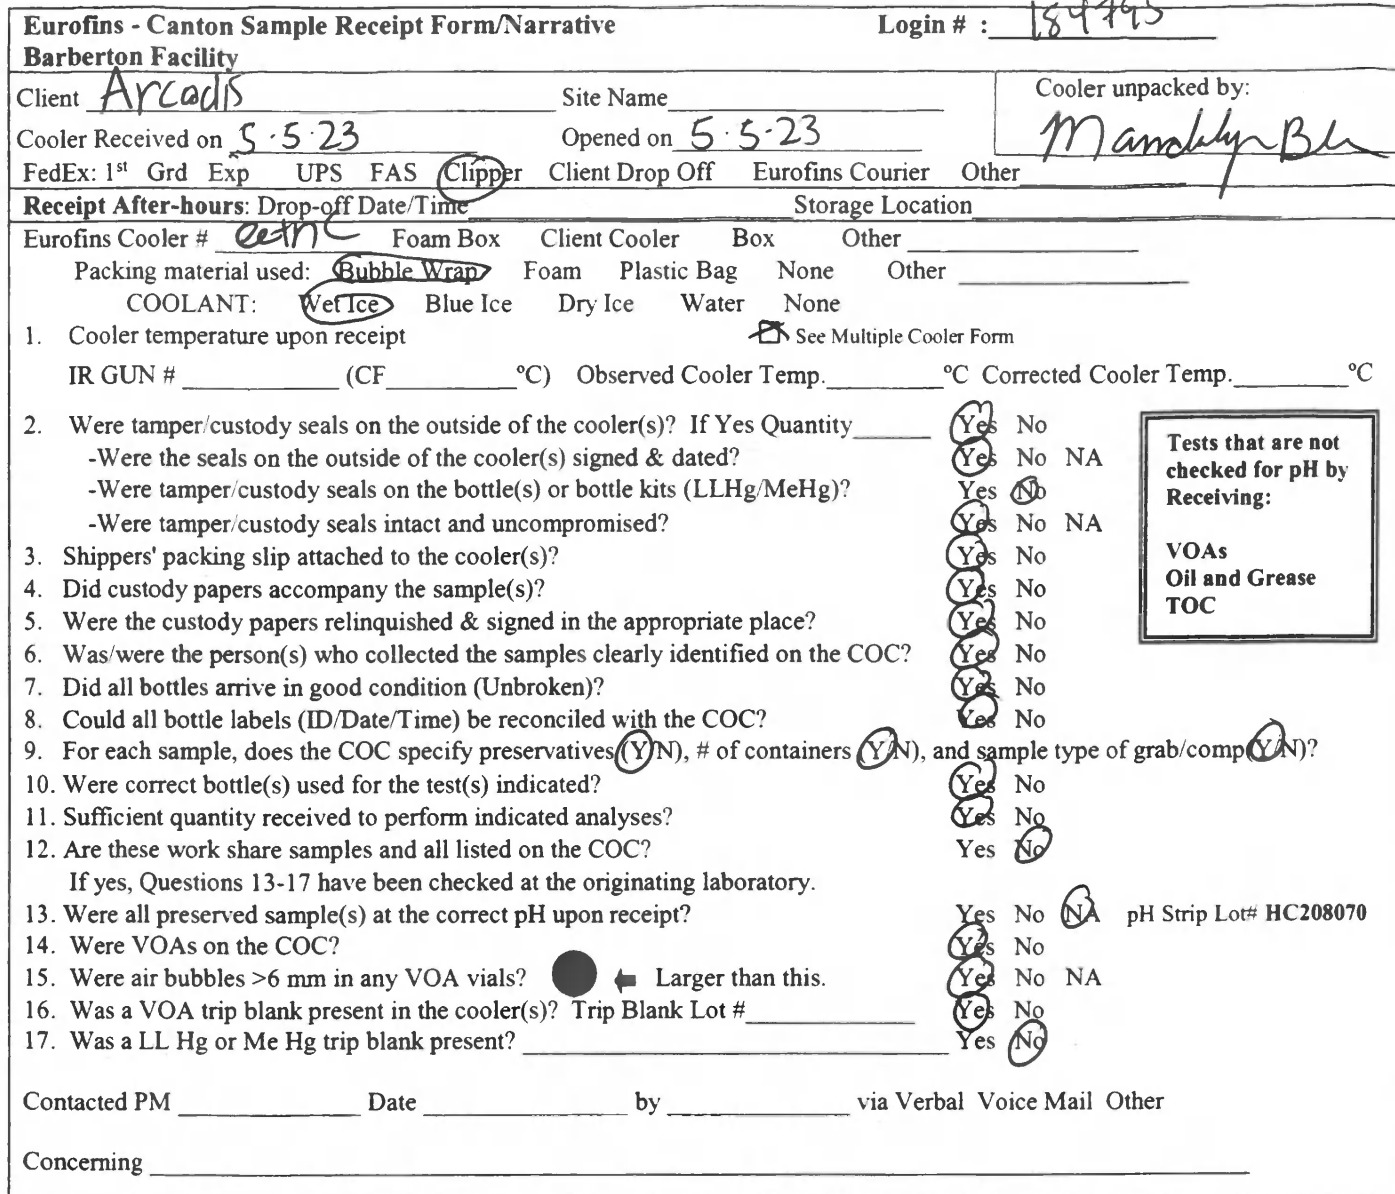 Eurofins - Canton Sample Receipt Form/Narrative Login # : 184795
Barberton Facility
Client Arcadis Site Name
Cooler unpacked by:
Cooler Received on 5.5.23 Opened on 5.5.23
FedEx: 1st Grd Exp UPS FAS Clipper Client Drop Off Eurofins Courier Other
Receipt After-hours: Drop-off Date/Time Storage Location
Eurofins Cooler # Foam Box Client Cooler Box Other
Packing material used: Bubble Wrap Foam Plastic Bag None Other
COOLANT: Wet Ice Blue Ice Dry Ice Water None
1. Cooler temperature upon receipt See Multiple Cooler Form
IR GUN # (CF °C) Observed Cooler Temp. °C Corrected Cooler Temp. °C
2. Were tamper/custody seals on the outside of the cooler(s)? If Yes Quantity Yes No
-Were the seals on the outside of the cooler(s) signed & dated? Yes No NA
-Were tamper/custody seals on the bottle(s) or bottle kits (LLHg/MeHg)? Yes No
-Were tamper/custody seals intact and uncompromised? Yes No NA
Tests that are not
checked for pH by
Receiving:
VOAs
Oil and Grease
TOC
3. Shippers' packing slip attached to the cooler(s)? Yes No
4. Did custody papers accompany the sample(s)? Yes No
5. Were the custody papers relinquished & signed in the appropriate place? Yes No
6. Was/were the person(s) who collected the samples clearly identified on the COC? Yes No
7. Did all bottles arrive in good condition (Unbroken)? Yes No
8. Could all bottle labels (ID/Date/Time) be reconciled with the COC? Yes No
9. For each sample, does the COC specify preservatives (Y/N), # of containers (Y/N), and sample type of grab/comp (Y/N)?
10. Were correct bottle(s) used for the test(s) indicated? Yes No
11. Sufficient quantity received to perform indicated analyses? Yes No
12. Are these work share samples and all listed on the COC? Yes No
If yes, Questions 13-17 have been checked at the originating laboratory.
13. Were all preserved sample(s) at the correct pH upon receipt? Yes No NA pH Strip Lot# HC208070
14. Were VOAs on the COC? Yes No
15. Were air bubbles >6 mm in any VOA vials? Larger than this. Yes No NA
16. Was a VOA trip blank present in the cooler(s)? Trip Blank Lot # Yes No
17. Was a LL Hg or Me Hg trip blank present? Yes No
Contacted PM Date by via Verbal Voice Mail Other
Concerning